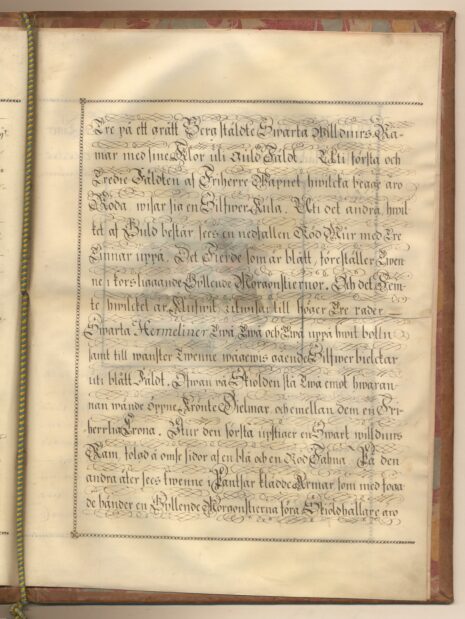 Tre på ett grått Berg stäldte Swarta Willdiurs Ra-
mar med sine Klor uti Gult Fäldt. Uti första och
Tredie Fäldten af Friherre Wapnet hwilcka begge äro
Röda, wisar sig en Silfwer Kula. Uti det andra hwil-
ket af Guld består sees en nedfallen Röd Mur med Tre
Tinnar uppå. Det Fierde som är blått, föreställer Twen-
ne i kors liggande Gyllende Morgonstiernor. Och det Fem-
te hwilcket är Kluswit, utwisar till höger Tre rader
Swarta Hermeliner Twå, Twå och Twå uppå hwit botln
samt till wänster Twenne wågewis gående Silfwer bielckar
uti blått Fäldt. Ofwan på Skiölden stå Twå emot hwaran-
nan wände öppne Krönte Hielmar och emellan dem en Fri-
herrlig Crona. Utur den första upstiger en Swart willdiurs
Ram, fölgd å ömse sidor af en blå och en Röd Fahna. På den
andra åter sees twenne i Pantsar klädde Armar som med begge
de händer en Gyllende Morgonstierna föra. Skiöldhållare äro